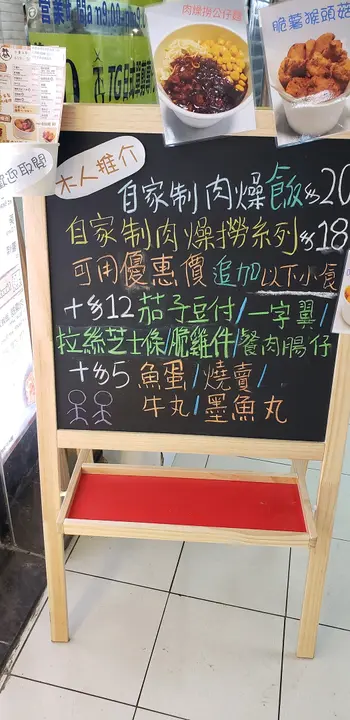 營業時間a n9:00-
肉燥撈公仔麵
脆薯猴頭菇
歡迎取閱
本人推介
自家制肉燥飯$20
自家制肉燥撈系列$18
可用優惠價追加以下小食
+$12茄子豆付/一字翼/
拉絲芝士條/脆雞件/餐肉腸仔
+$5魚蛋/燒賣/
牛丸/墨魚丸